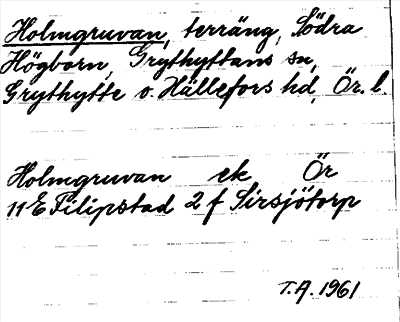 Holmgruvan, terräng, Södra
Högborn, Grythyttans sn,
Grythytte o. Hällefors hd, Ör. l.
Holmgruvan ek Ör
11E Filipstad 2 f Sirsjötorp
T.A. 1961